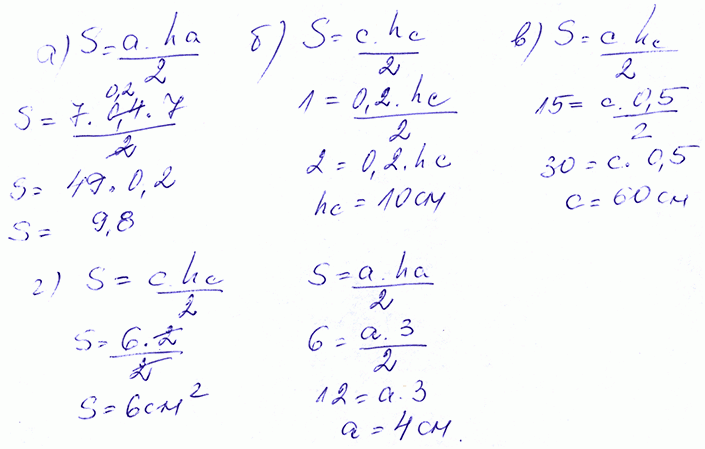 а) S = a . ha / 2
S = 7 . 0,4 . 7 / 2
0,2
S = 49 . 0,2
S = 9,8
б) S = c . hc / 2
1 = 0,2 . hc / 2
2 = 0,2 . hc
hc = 10 см
в) S = c hc / 2
15 = c . 0,5 / 2
30 = c . 0,5
c = 60 см
г) S = c . hc / 2
S = 6 . 2 / 2
S = 6 см²
S = a . ha / 2
6 = a . 3 / 2
12 = a . 3
a = 4 см.